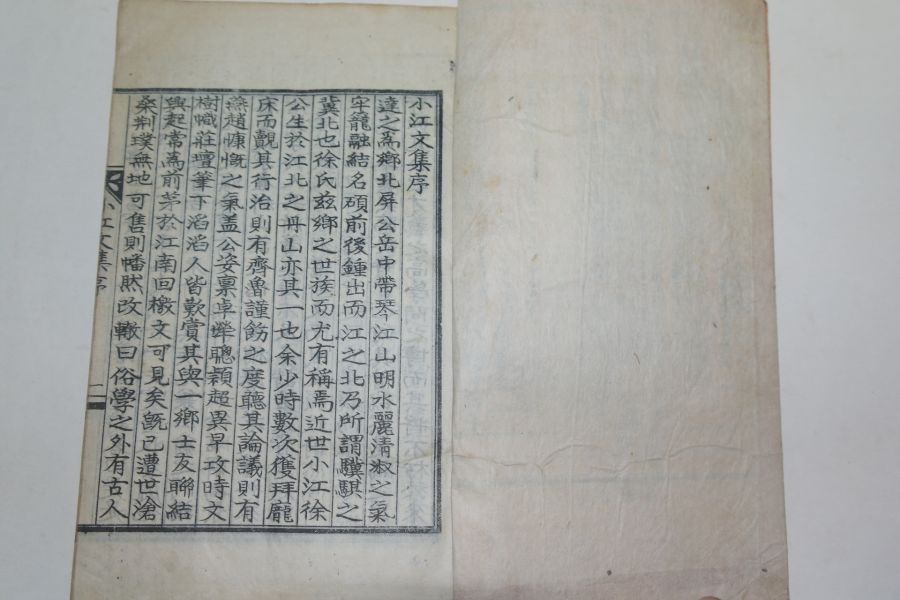 小江文集序
達之爲鄉北屏公岳中帶琴江山明水麗清淑之氣
牢籠融結名碩前後鍾出而江之北乃所謂驥騏之
冀北也徐氏玆鄉之世族而尤有稱焉近世小江徐
公生於江北之丹山亦其一也余少時數次獲拜龐
床而觀其行治則有齊魯謹飭之度聽其論議則有
燕趙慷慨之氣盖公姿稟卓犖聰穎超異早攻時文
樹幟莊壇筆下滔滔人皆歎賞其與一鄉士友聯結
興起常爲前茅於江南回檄文可見矣旣已遭世滄
桑荆璞無地可售則幡然改轍曰俗學之外有古人
小江文集序
一